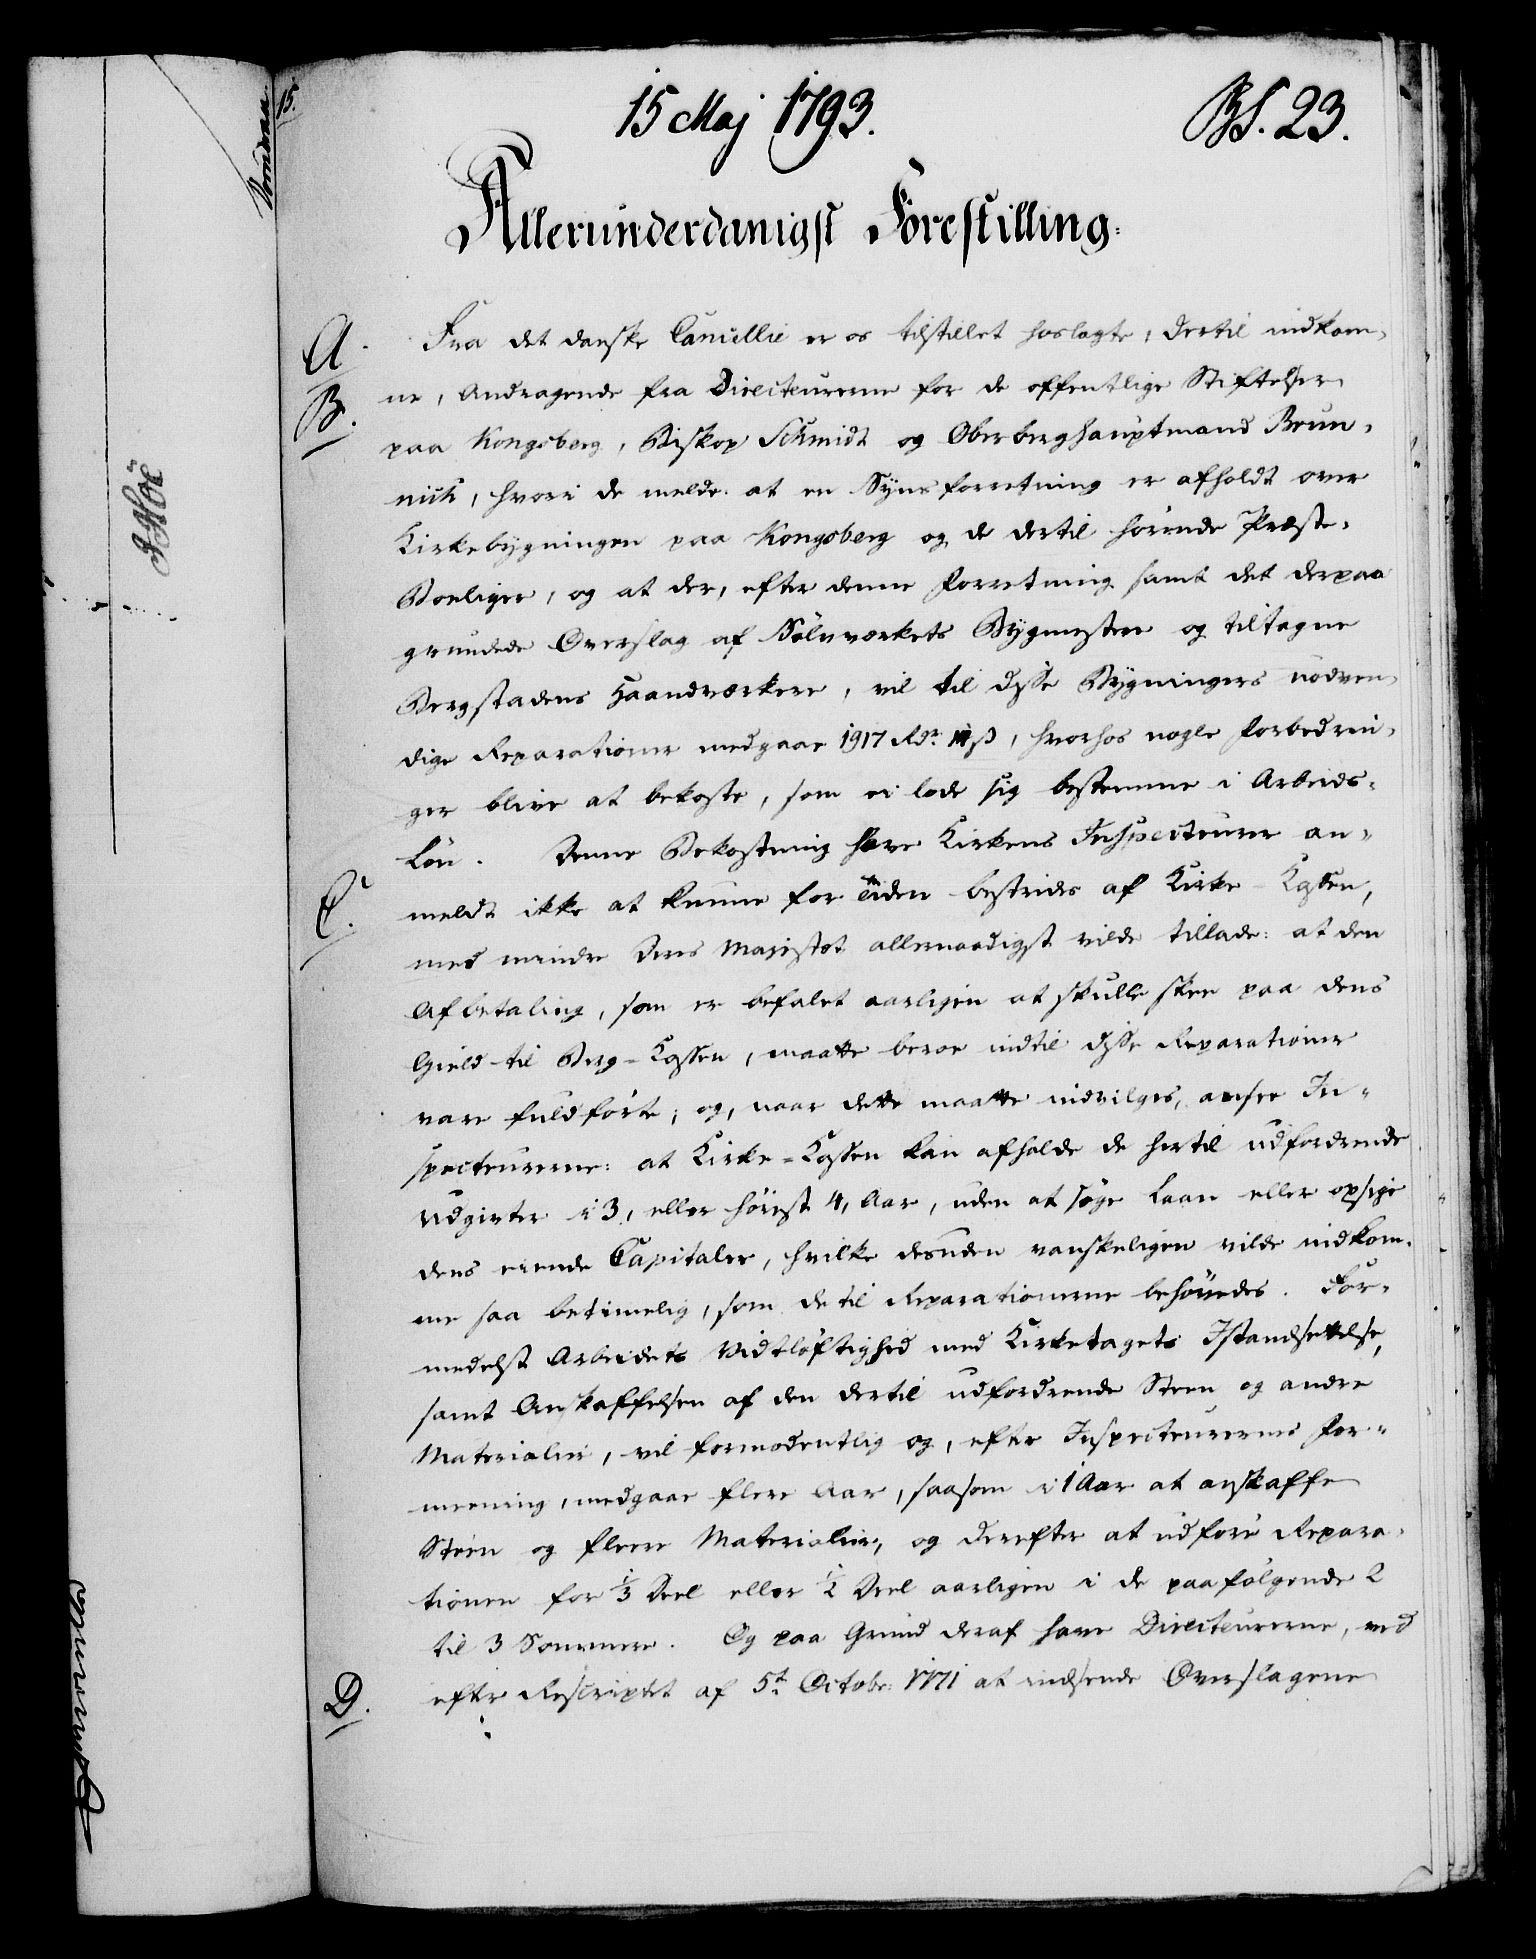 15 Maj 1793.
BS. 23.
Allerunderdanigst Forestilling.
A. Fra det danske Cancellie er os tilstillet hoslagte, dertil indkom-
B. ne, Andragende fra Directeurerne for de offentlige Stiftelser
paa Kongsberg, Biskop Schmidt og Oberberghauptmand Brun-
nich, hvori de melde: at en Synsforretning er afholdt over
Kirkebygningen paa Kongsberg og de dertil hörende Præste-
Boeliger, og at der, efter denne Forretning samt det derpaa
grundede Overslag af Sölvværkets Bygmester og tiltagne
Bergstadens Haandværkere, vil til disse Bygningers nödven-
dige Reparationer medgaae 1917 Rdr. ß, hvorhos nogle Forbedrin-
ger blive at bekoste, som ei lode sig bestemme i Arbeids-
Lön. Denne Bekostning have Kirkens Inspecteurer an-
C. meldt ikke at kunne for Tiden bestrides af Kirke-Cassen,
med mindre Deres Majestæt allernaadigst vilde tillade: at den
Afbetaling, som er befalet aarligen at skulle skee paa dens
Gield til Berg-Cassen, maatte beroe indtil disse Reparationer
vare fuldförte; og, naar dette maatte indvilges, ansee In-
specteurerne: at Kirke-Cassen kan afholde de hertil udfordrende
Udgivter i 3, eller höiest 4, Aar, uden at söge Laan eller opsige
dens eiende Capitaler, hvilke desuden vanskeligen vilde indkom-
me saa betimelig, som de til Reparationerne behövedes. For-
medelst Arbeidets Vidtlöftighed med Kirketagets Istandsettelse,
samt Anskaffelsen af den dertil udfordrende Steen og andre
Materialier, vil formodentlig og, efter Inspecteurernes For-
meening, medgaae flere Aar, saasom i 1 Aar at anskaffe
Steen og flere Materialier, og derefter at udföre Repara-
tionen for 1/3 Deel eller 1/2 Deel aarligen i de paafölgende 2
til 3 Sommere. Og paa Grund deraf have Directeurerne, ved
D. efter Rescriptet af 5t. Octobr. 1771 at indsende Overslagene